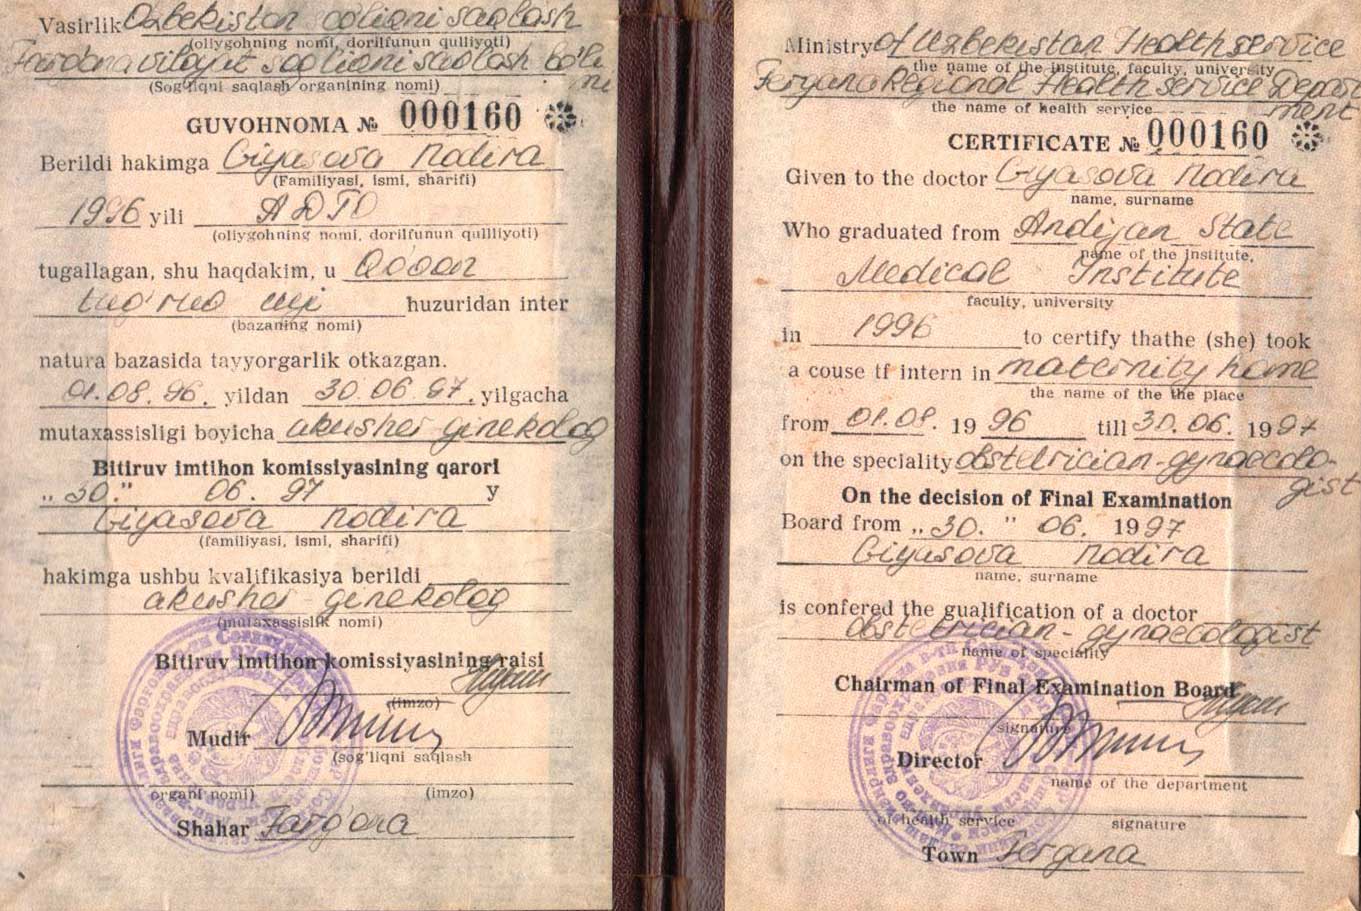 Vasirlik Uzbekiston sogliqni saqlash
(oliygohning nomi, dorilfunun qulliyoti)
Fargona viloyat sogliqni saqlash bo'li
mi
(Sog'liqni saqlash organining nomi)
GUVOHNOMA № 000160
Berildi hakimga Giyasova Nodira
(Familiyasi, ismi, sharifi)
1996 yili ADTI
(oliygohning nomi, dorilfunun qullliyoti)
tugallagan, shu haqdakim, u Qoqon
tug'ruq uyi huzuridan inter
(bazaning nomi)
natura bazasida tayyorgarlik otkazgan.
01.08.96. yildan 30.06 97. yilgacha
mutaxassisligi boyicha akusher ginekolog
Bitiruv imtihon komissiyasining qarori
„30." 06. 97 y
Giyasova Nodira
(familiyasi, ismi, sharifi)
hakimga ushbu kvalifikasiya berildi
akusher-ginekolog
(mutaxassislik nomi)
Bitiruv imtihon komissiyasining raisi
(imzo)
Mudir
(sog'liqni saqlash
organi nomi) (imzo)
Shahar Farg'ona
Ministry of Uzbekistan Health service
the name of the institute, faculty, university
Feryana Regional Health service Depart
ment
the name of health service
CERTIFICATE № 000160
Given to the doctor Giyasova Nodira
name, surname
Who graduated from Andijan State
name of the institute,
Medical Institute
faculty, university
in 1996 to certify thathe (she) took
a couse tf intern in maternity home
the name of the the place
from 01.08. 19 96 till 30.06. 1997
on the speciality obstetrician-gynaecolo-
gist
On the decision of Final Examination
Board from „30. " 06. 1997
Giyasova Nodira
name, surname
is confered the gualification of a doctor
obstetrician-gynaecologist
name of speciality
Chairman of Final Examination Board
signature
Director
name of the department
of health service signature
Town Fergana